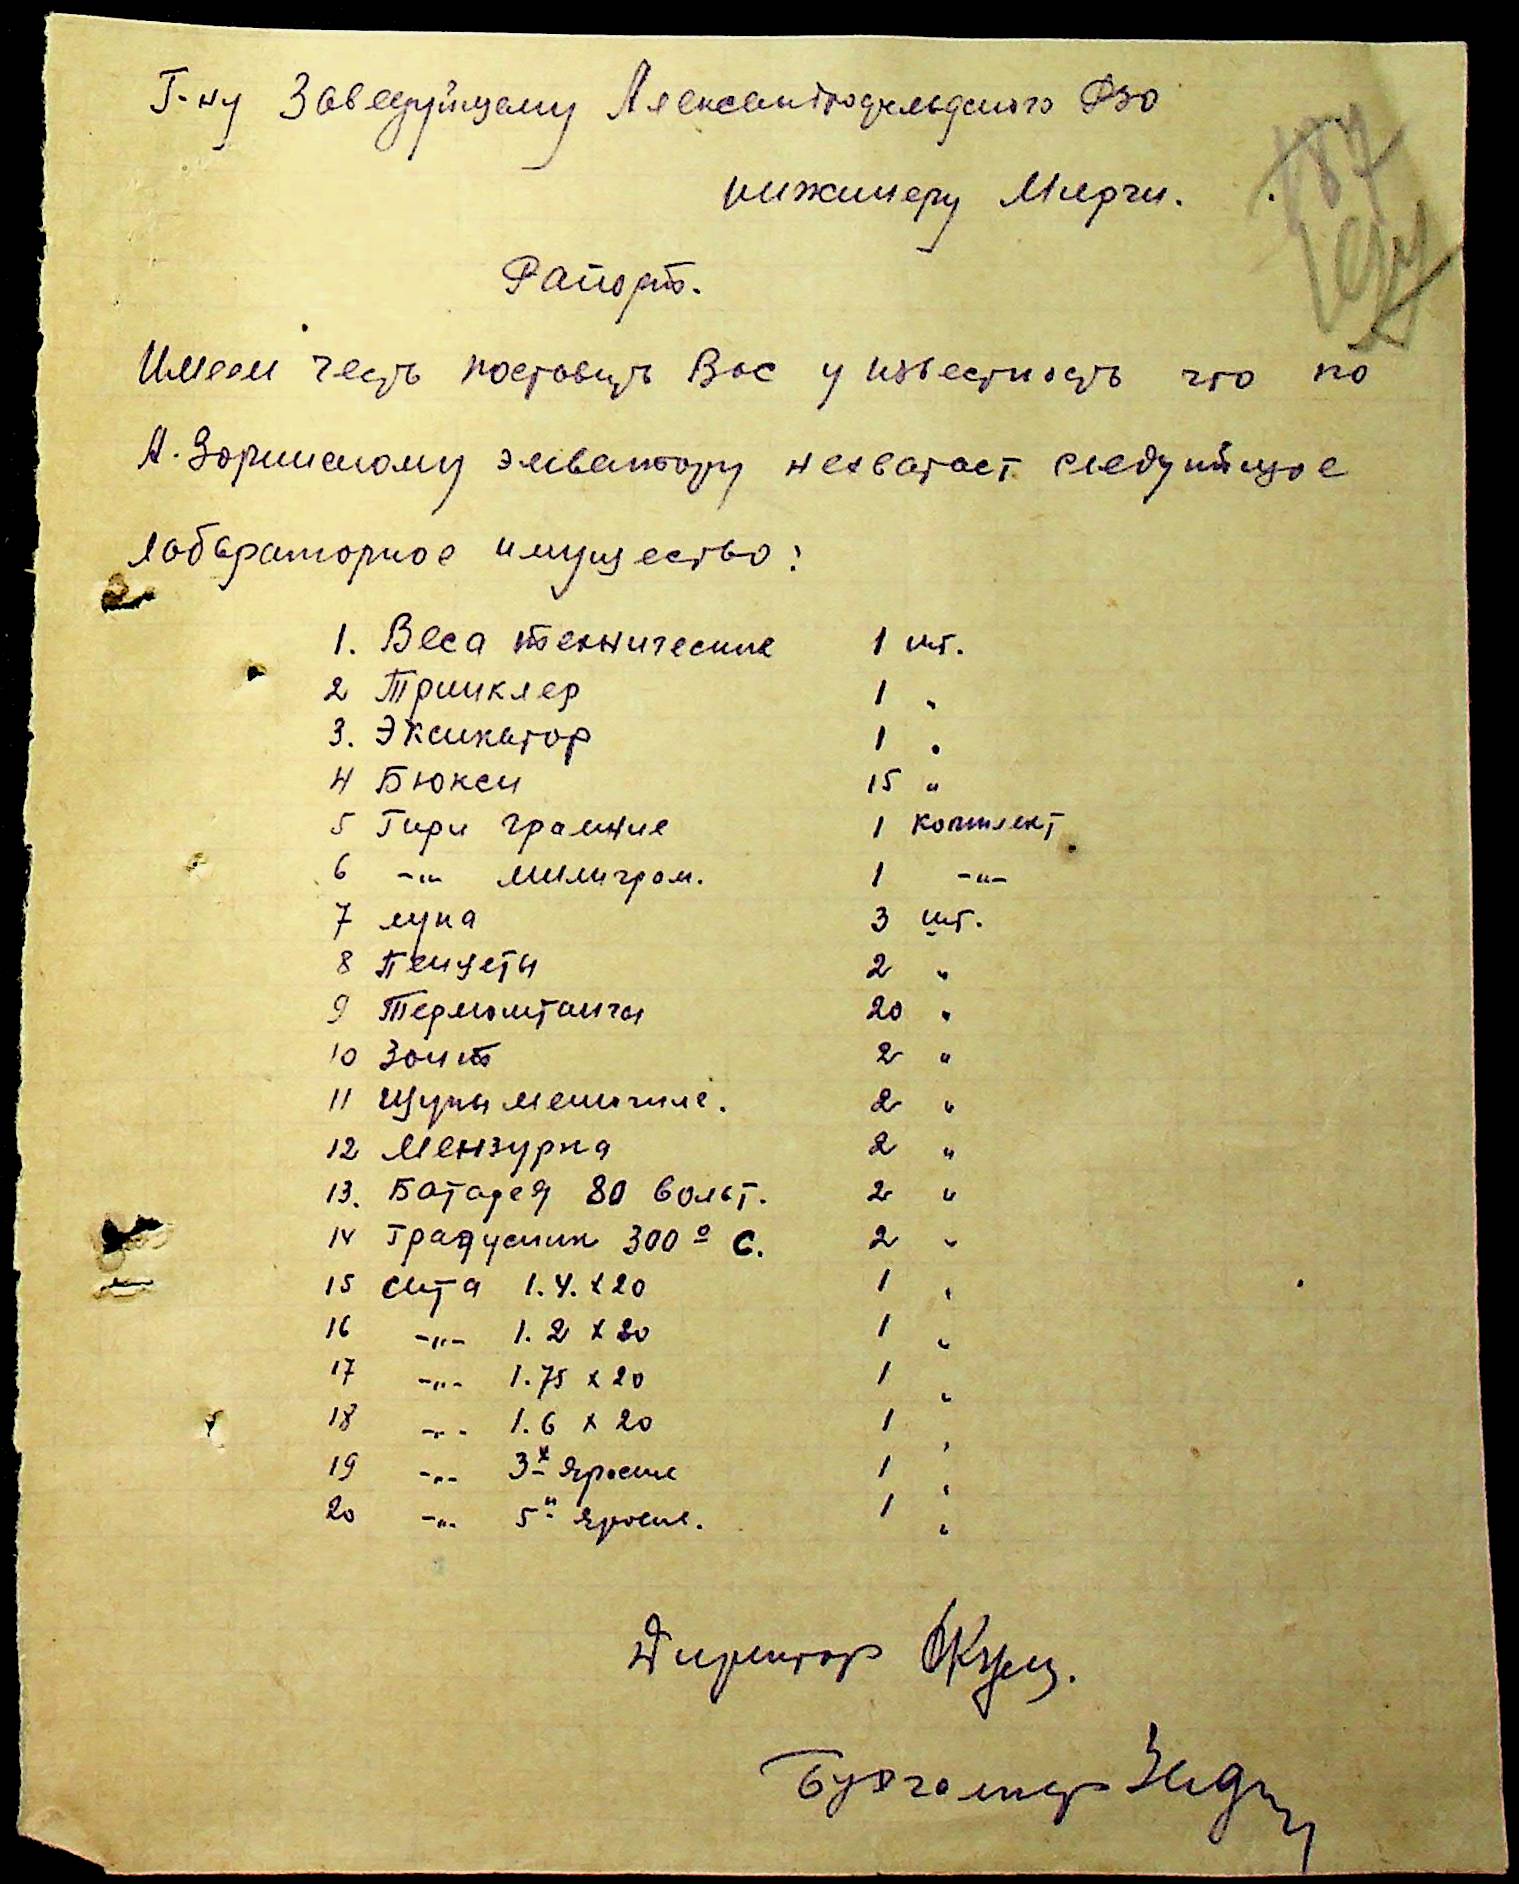 Г-ну Заведуйщему Александрфельдского Рзо
инжинеру Мирчи.
187
Рапорт.
Имеем честь поставить Вас у известность что по
А. Зоринскому элеватору нехватает следуищое
лабораторное имущество:
1. Веса технические 1 шт.
2 Триклер 1 "
3. Эксикатор 1 "
4 Бюкси 15 "
5 Гири грамние 1 комплект
6 -"- милиграм. 1 -"-
7 лупа 3 шт.
8 Пенцеты 2 "
9 Термоштанги 20 "
10 Зонт 2 "
11 Щупы мешочние. 2 "
12 Мензурка 2 "
13. Батарея 80 вольт. 2 "
14 Градусник 300º С. 2 "
15 Сита 1.4. х 20 1 "
16 -"- 1.2 х 20 1 "
17 -"- 1.75 х 20 1 "
18 -"- 1.6 х 20 1 "
19 -"- 3х яросне 1 "
20 -"- 5и яросне. 1 "
Директор
Бухгалтер